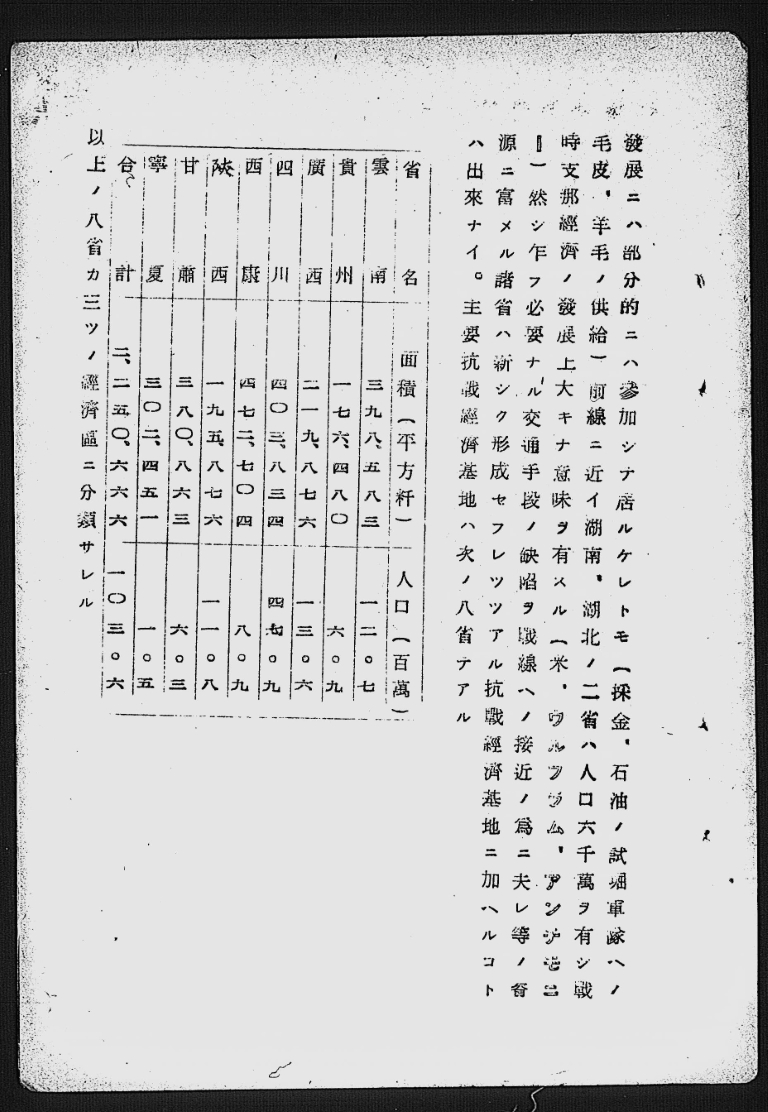 發展ニハ部分的ニハ參加シナ居ルケレトモ(採金、石油ノ試堀軍隊ヘノ
毛皮、羊毛ノ供給)前線ニ近イ湖南、湖北ノ二省ハ人口六千萬ヲ有シ戰
時支那經濟ノ發展上大キナ意味ヲ有スル(米、ウルフラム、アンチモニ
ー)然シ乍フ必要ナル交通手段ノ缺陷ヲ戰線ヘノ接近ノ爲ニ夫レ等ノ資
源ニ富メル諸省ハ新シク形成セフレツツアル抗戰經濟基地ニ加ヘルコト
ハ出來ナイ。主要抗戰經濟基地ハ次ノ八省テアル
省名 面積(平方粁) 人口(百萬)
雲南 三九八、五八三 一二。七
貴州 一七六、四八〇 六。九
廣西 二一九、八七六 一三。六
四川 四〇三、八三四 四七。九
西康 四七二、七〇四 八。九
陝西 一九五、八七六 一一。八
甘肅 三八〇、八六三 六。三
寧夏 三〇二、四五一 一。五
合計 二、二五〇、六六六 一〇三。六
以上ノ八省カ三ツノ經濟區ニ分類サレル